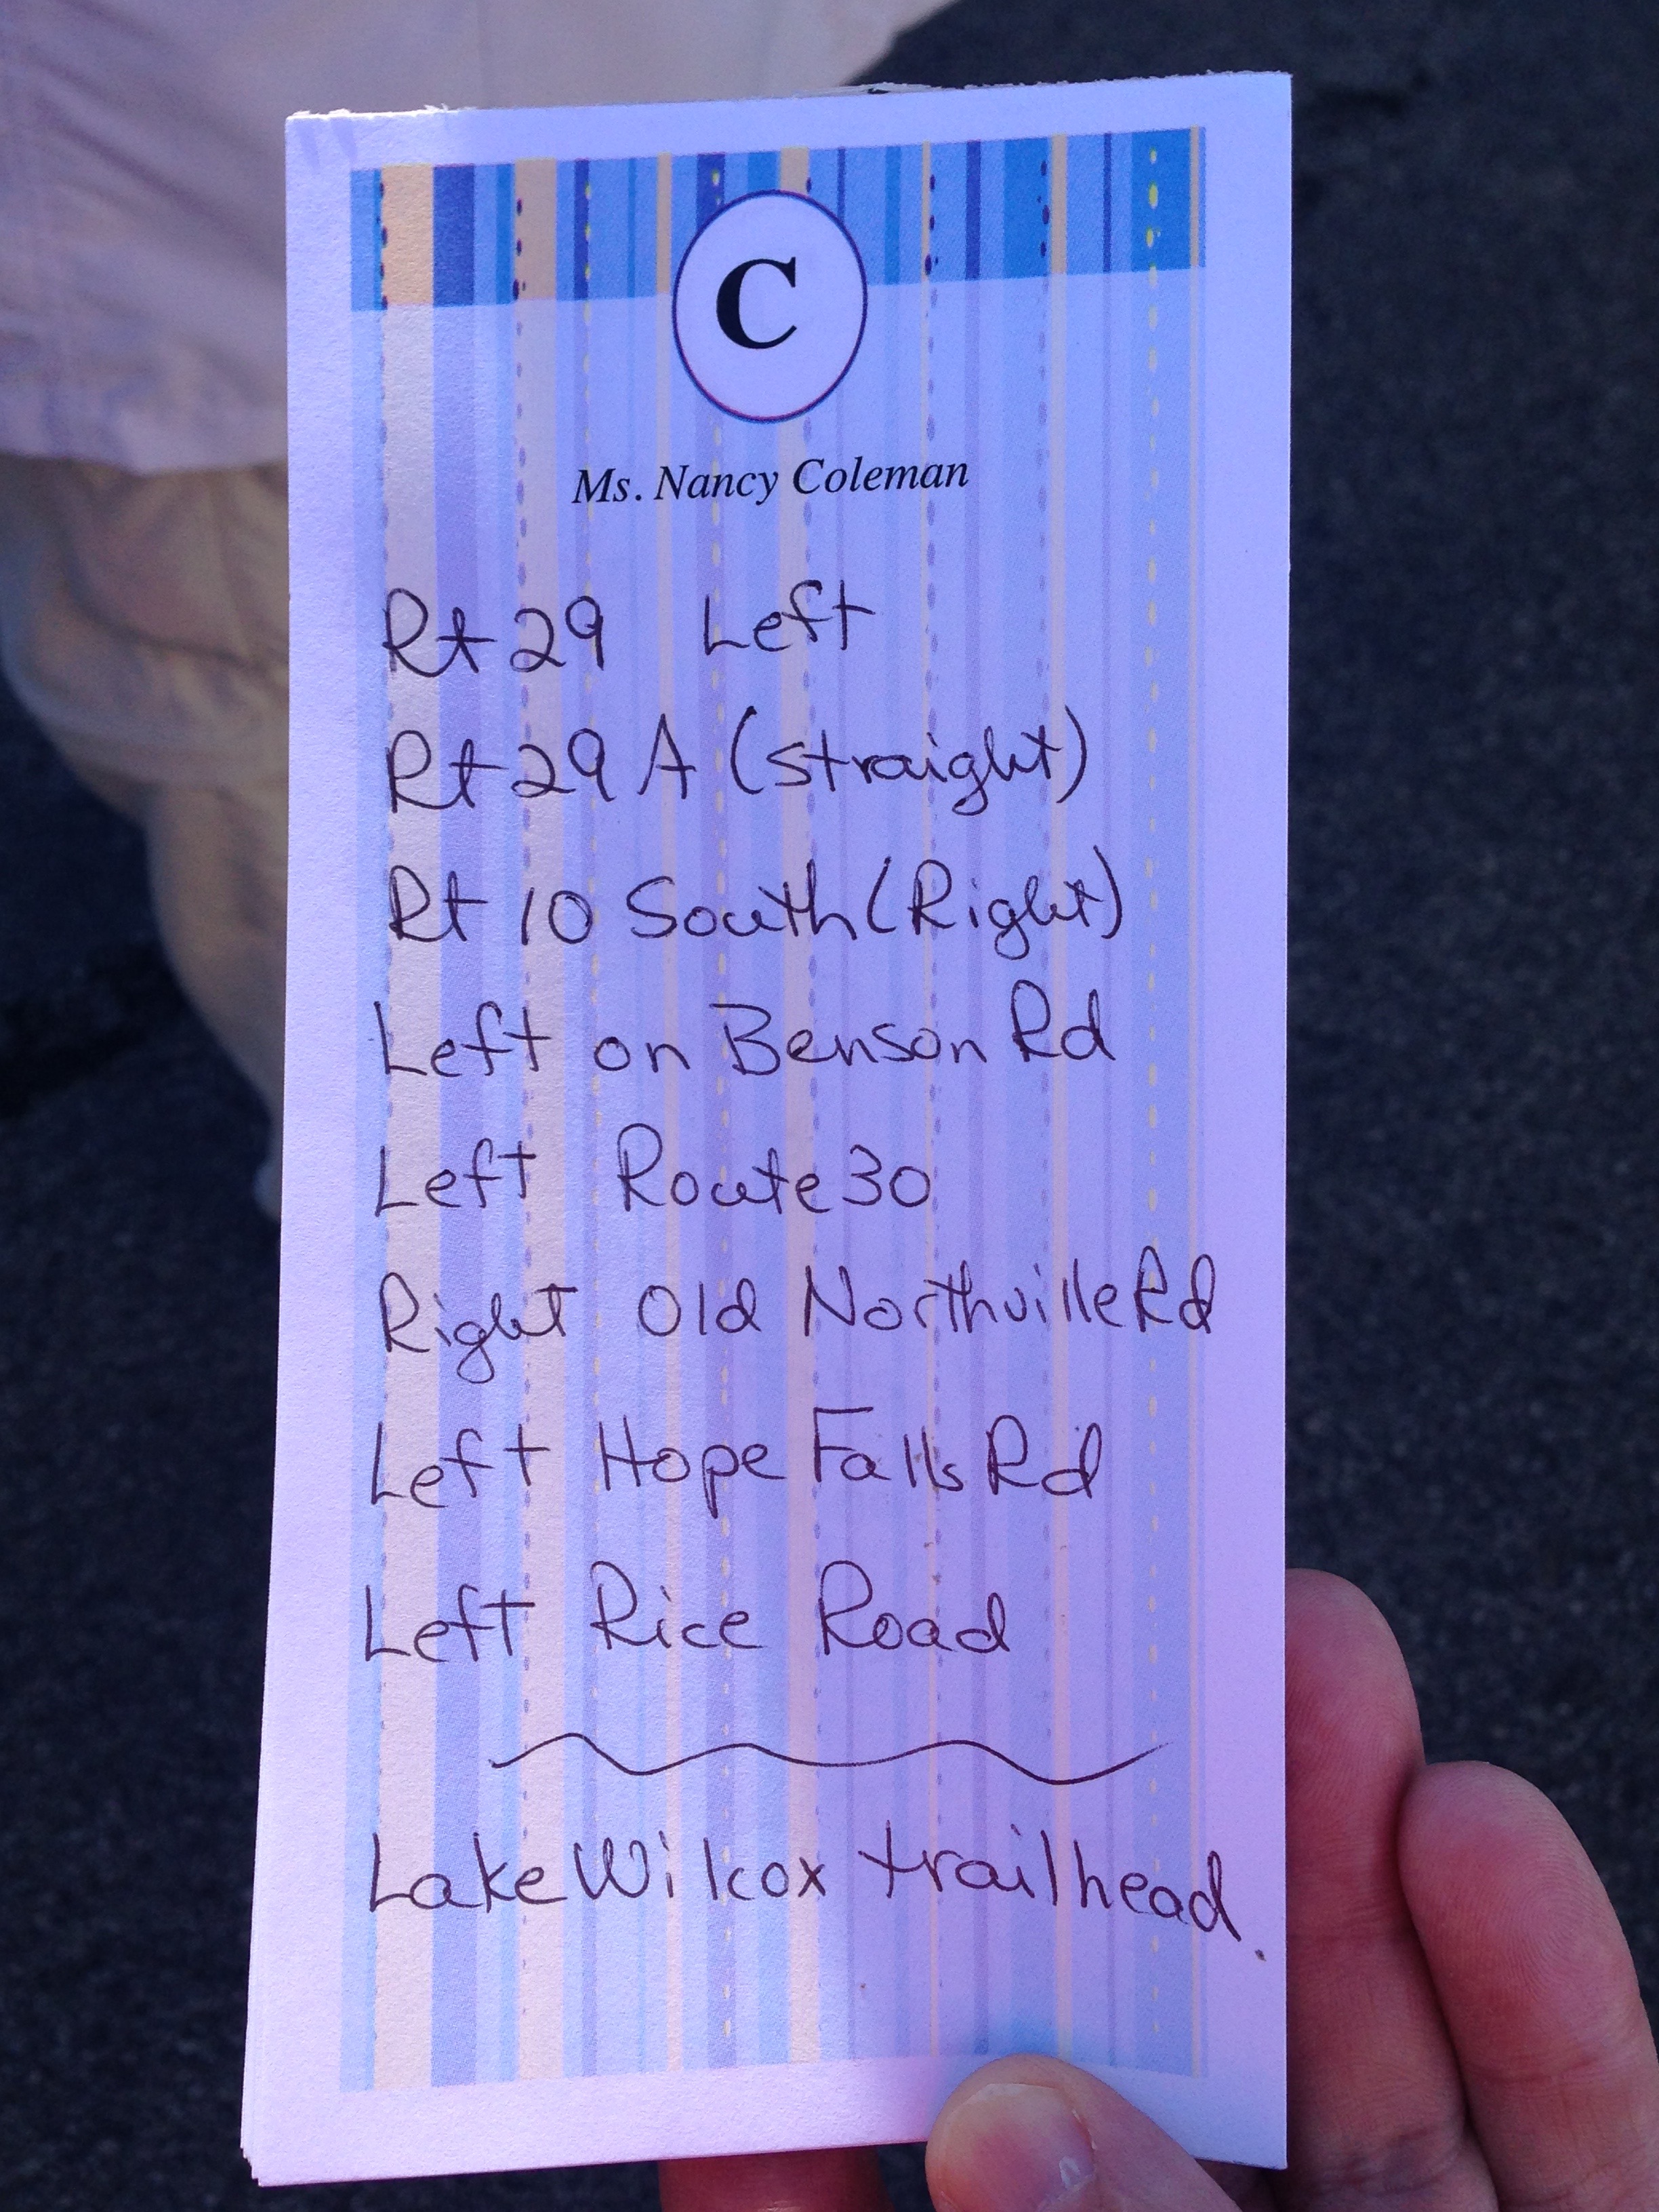 C
Ms. Nancy Coleman
Rt 29 Left
Rt 29 A (straight)
Rt 10 South (Right)
Left on Benson Rd
Left Route 30
Right Old Northville Rd
Left Hope Falls Rd
Left Rice Road
Lake Wilcox trailhead.